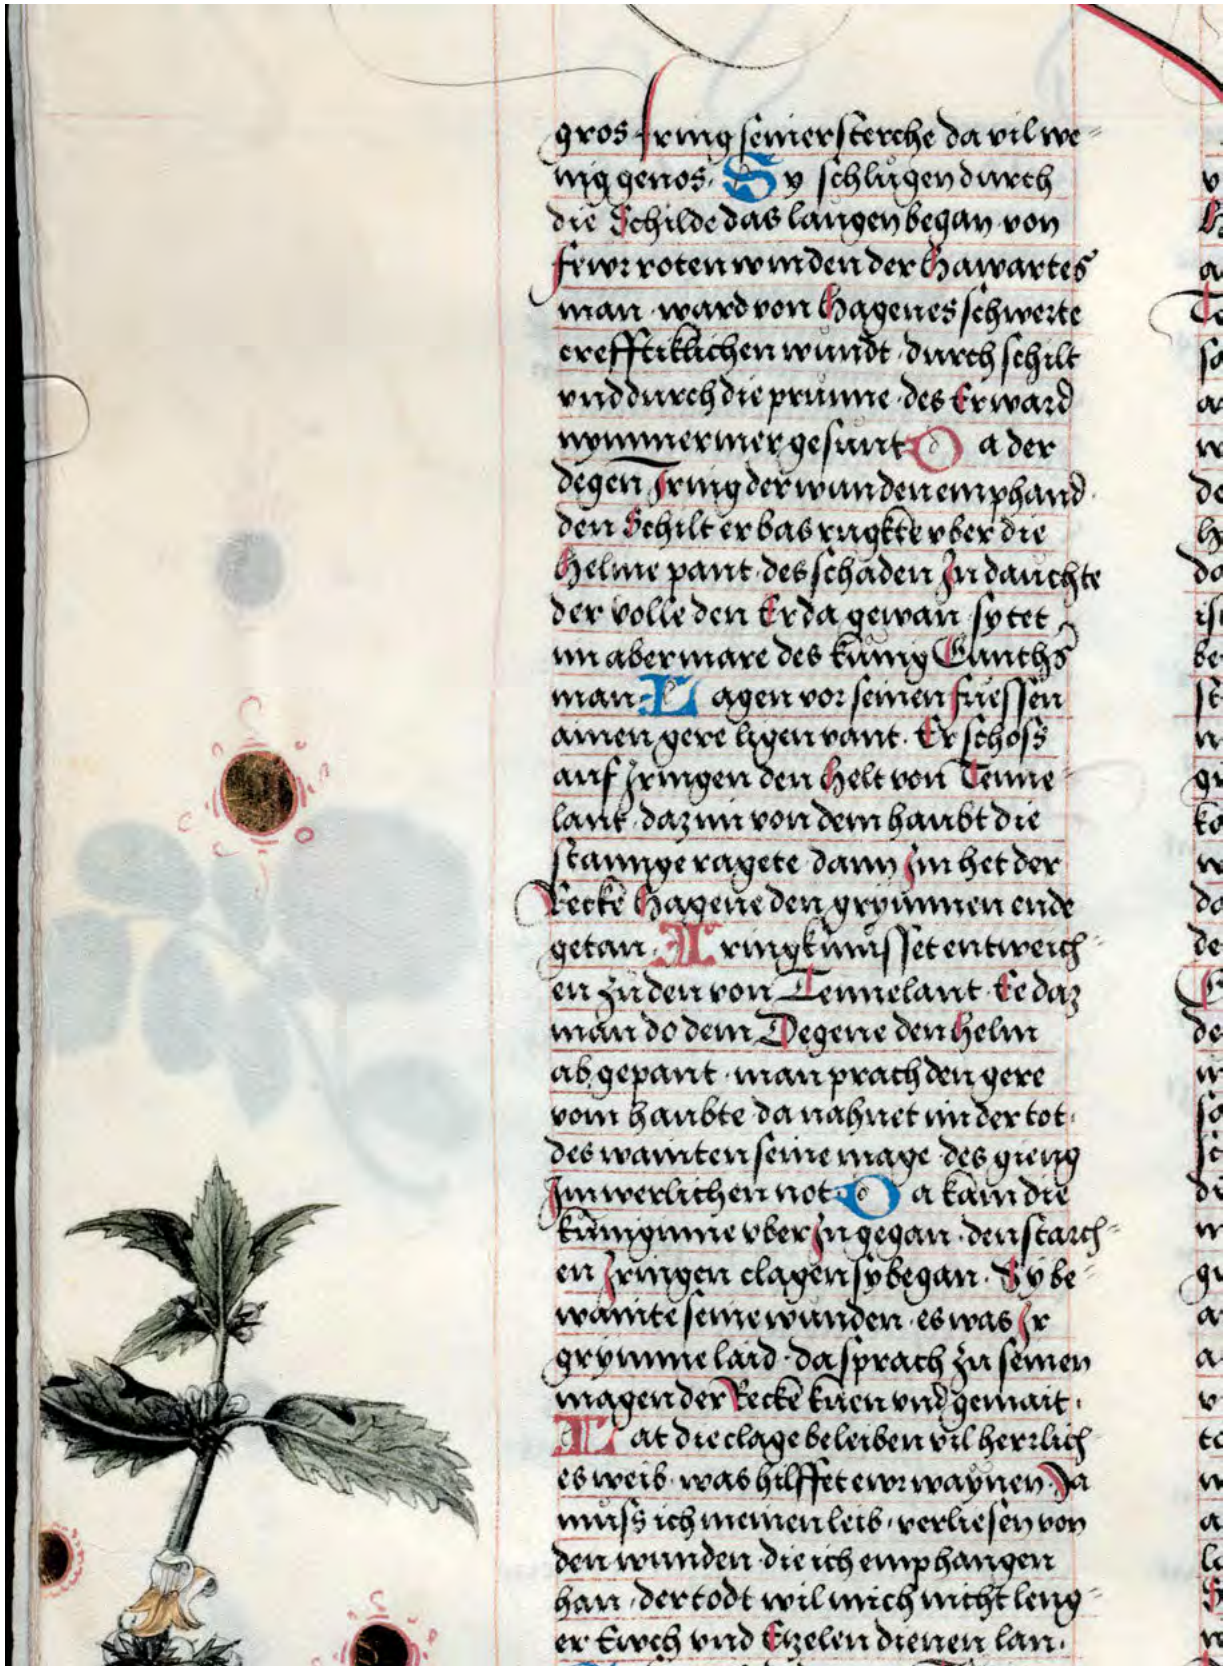 gros Iring seiner sterche da vil we-
nig genos. Sy schlůgen durch
die Schilde das laugen began von
fewr roten winden der Hawartes
man · ward von Hagenes schwerte
crefftiklichen wundt · durch schilt
vnd durch die prünne · des Er ward
nymmer mer gesunt Da der
degen Iring der wunden emphand ·
den Schilt er bas rugkte vber die
Helme pant · des schaden In dauchte
der volle den Er da gewan · sytet
im aber mare des künig Gunthrs
man Hagen vor seinen fuessen
ainen gere ligen vant · Er schoss
auf Iringen den Helt von Tenne-
lant · daz im von dem haubt die
stannge ragete · dann Im het der
Recke Hagene den grymmen ende
getan · Iring kunisset entweich-
en zu den von Tennelant · Ee daz
man do dem Degene den helm
ab gepant · man prach den gere
vom haubte · da nahnet im der tot ·
des wainten seine mage · des gieng
Im werlichen not Da kam die
küniginne vber In gegan · den starch-
en Iringen clagen sy began · Sy be-
wainte seine wunden · es was Ir
grymme laid · da sprach zu seinen
magen der Recke küen vnd gemait ·
Lat die clage beleiben vil herrlich
es weib · was hilffet ewr waynen Ja
muss ich meinen leib · verliesen von
den wunden · die ich emphangen
han · der todt wil mich nicht leng-
er Ewch vnd Etzelen dienen lan ·